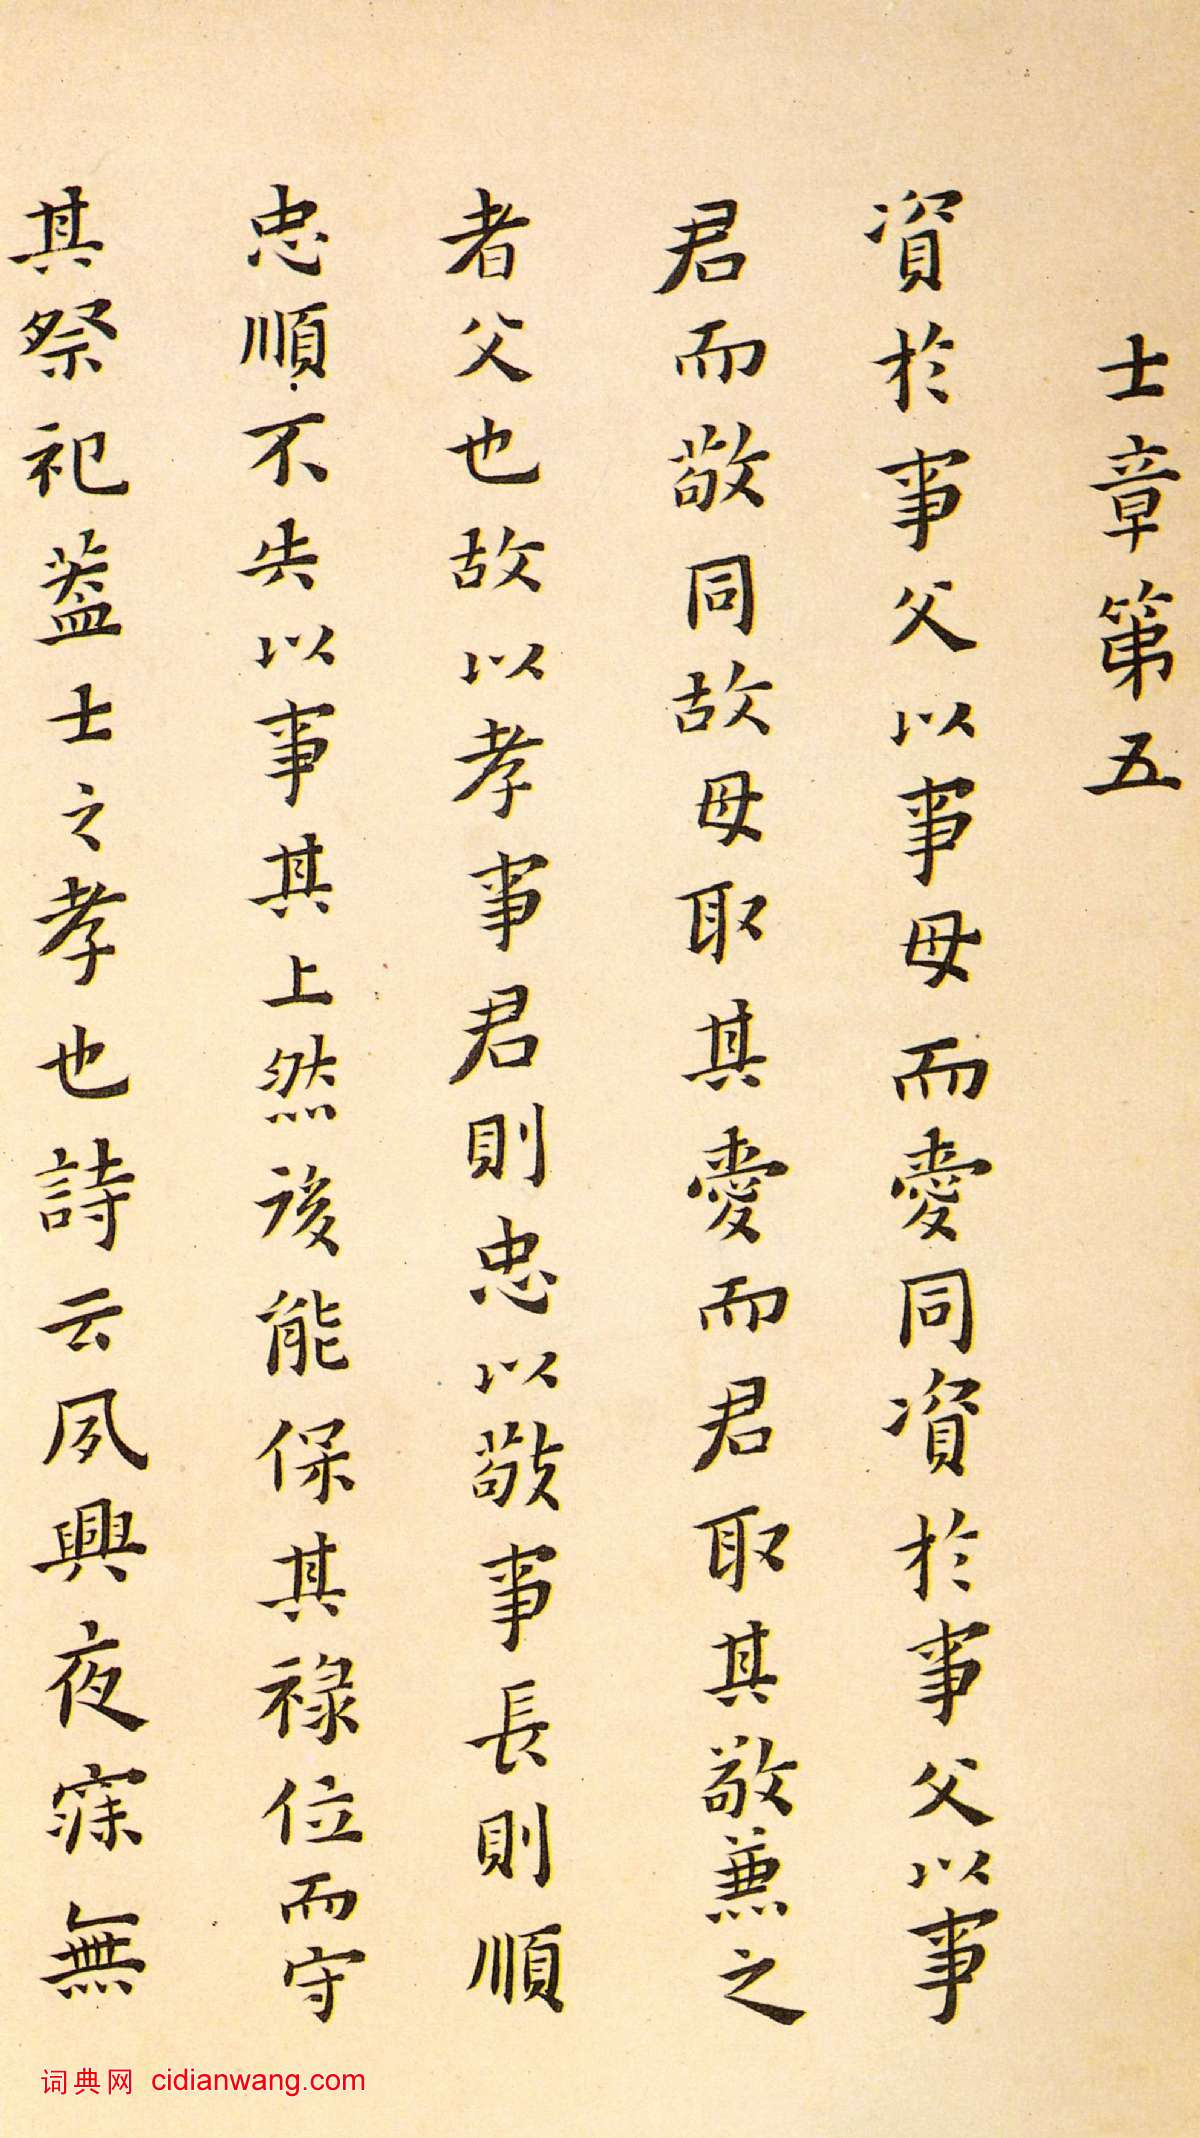 士章第五
資於事父以事母而愛同資於事父以事
君而敬同故母取其愛而君取其敬兼之
者父也故以孝事君則忠以敬事長則順
忠順不失以事其上然後能保其祿位而守
其祭祀蓋士之孝也詩云夙興夜寐無
词典网 cidianwang.com